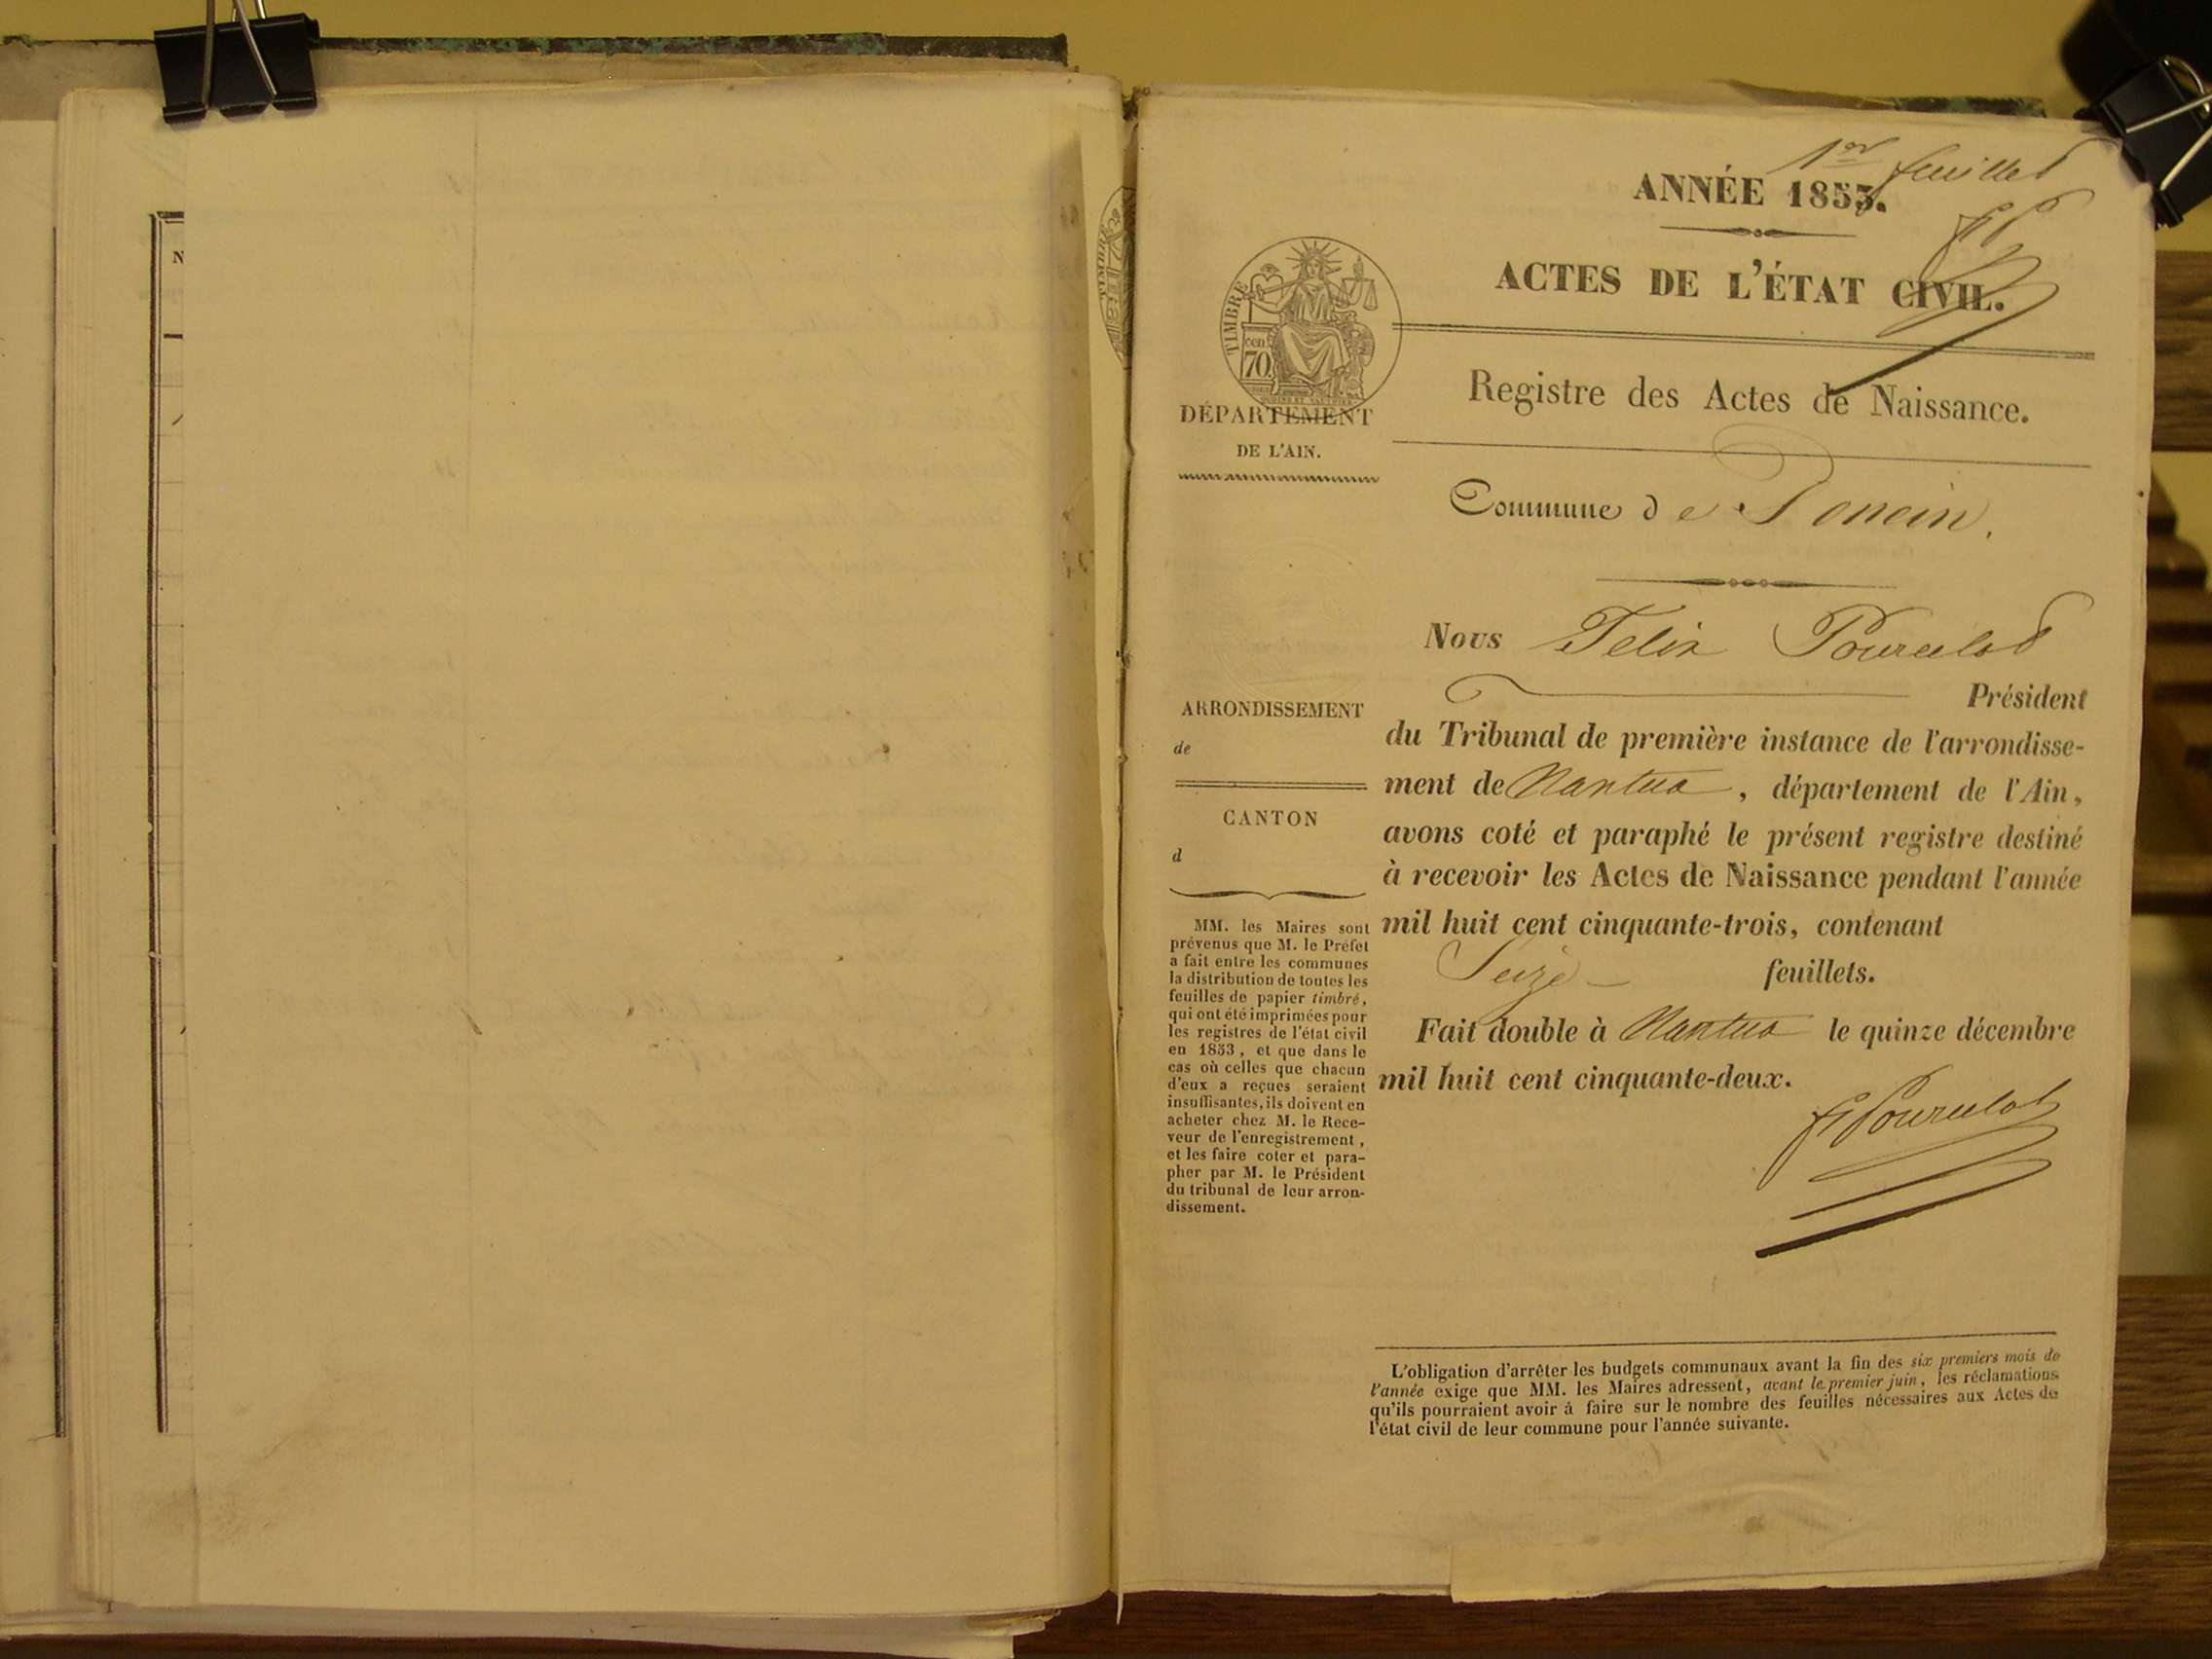 N
1er feuillet
ANNÉE 1853.
ACTES DE L'ÉTAT CIVIL.
TIMBRE
cen
70.
DÉPARTEMENT
DE L'AIN.
Registre des Actes de Naissance.
Commune de Poncin.
Nous Felix Pourcelot
Président
du Tribunal de première instance de l'arrondisse-
ment de Nantua, département de l'Ain,
avons coté et paraphé le présent registre destiné
à recevoir les Actes de Naissance pendant l'année
mil huit cent cinquante-trois, contenant
Seize feuillets.
Fait double à Nantua le quinze décembre
mil huit cent cinquante-deux.
ARRONDISSEMENT
de
CANTON
d
MM. les Maires sont
prévenus que M. le Préfet
a fait entre les communes
la distribution de toutes les
feuilles de papier timbré,
qui ont été imprimées pour
les registres de l'état civil
en 1853, et que dans le
cas où celles que chacun
d'eux a reçues seraient
insuffisantes, ils doivent en
acheter chez M. le Rece-
veur de l'enregistrement,
et les faire coter et para-
pher par M. le Président
du tribunal de leur arron-
dissement.
L'obligation d'arrêter les budgets communaux avant la fin des six premiers mois de
l'année exige que MM. les Maires adressent, avant le premier juin, les réclamations
qu'ils pourraient avoir à faire sur le nombre des feuilles nécessaires aux Actes de
l'état civil de leur commune pour l'année suivante.